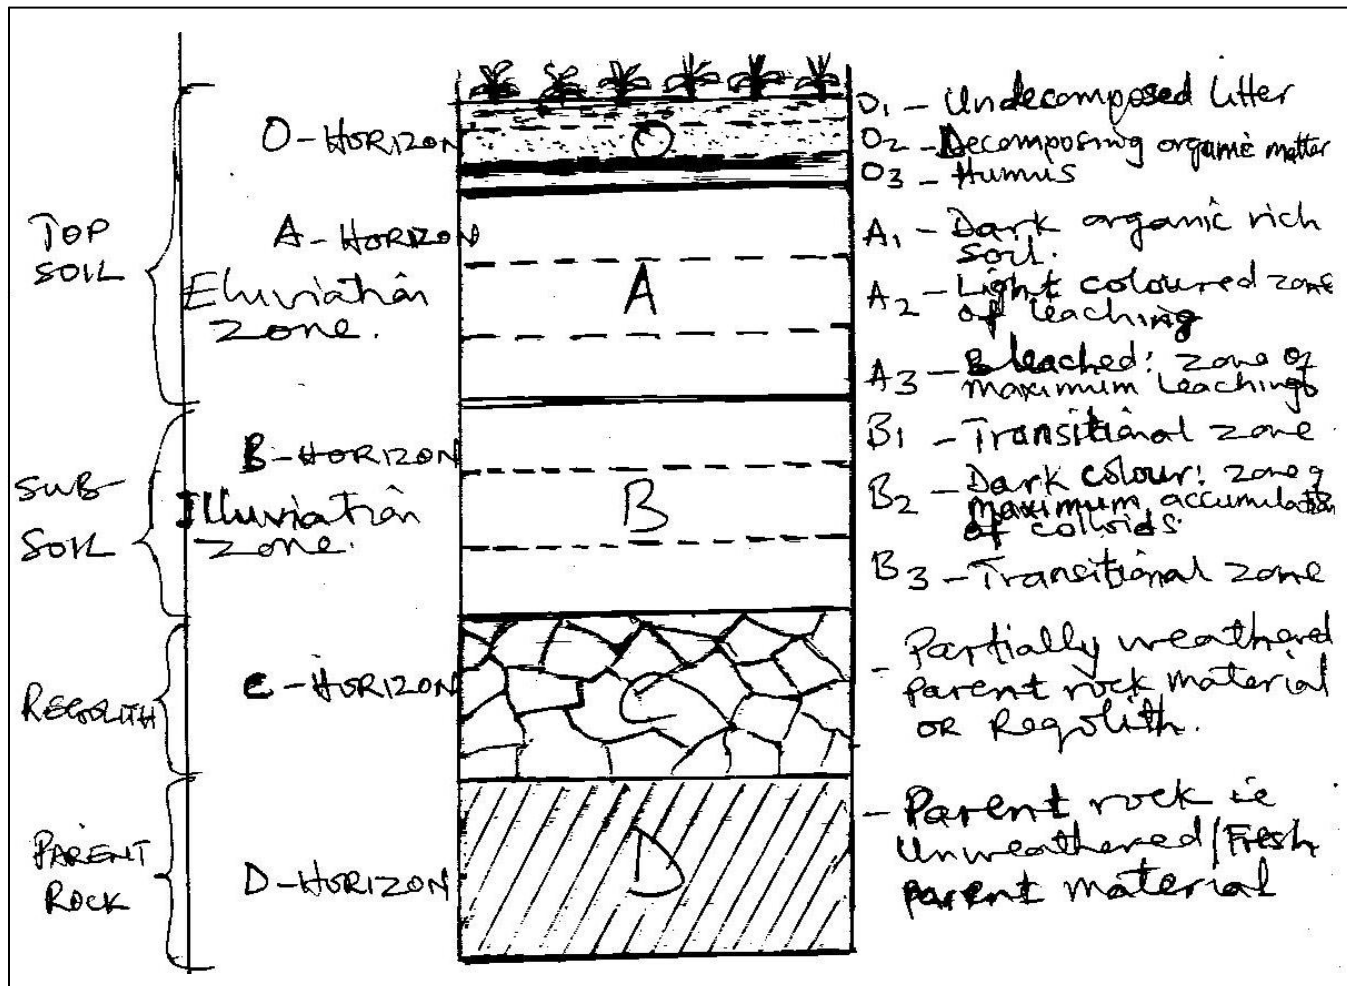 TOP
SOIL
SUB-
SOIL
REGOLITH
PARENT
ROCK
O-HORIZON
A-HORIZON
Eluviation
zone.
B-HORIZON
Illuviation
zone.
C-HORIZON
D-HORIZON
O
A
B
C
D
O1 - Undecomposed litter
O2 - Decomposing organic matter
O3 - Humus
A1 - Dark organic rich
soil.
A2 - Light coloured zone
of leaching
A3 - Bleached: zone of
maximum leaching
B1 - Transitional zone
B2 - Dark colour: zone of
maximum accumulation
of colloids
B3 - Transitional zone
- Partially weathered
parent rock material
OR Regolith.
- Parent rock ie
Unweathered/Fresh
parent material